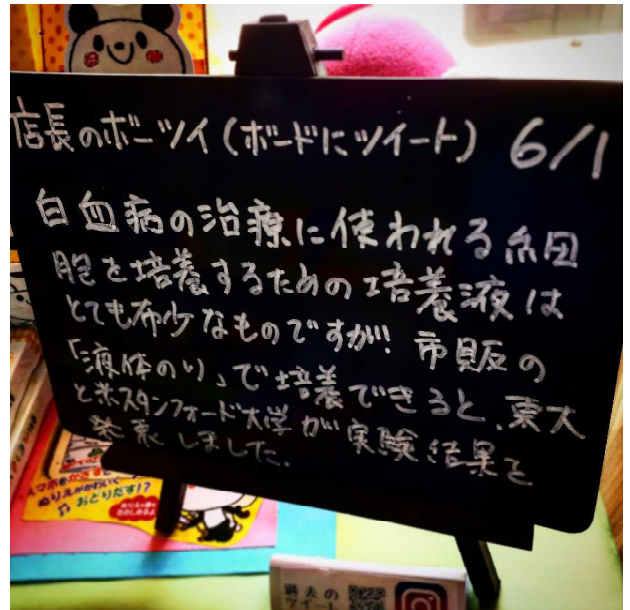 店長のボーツイ(ボードにツイート) 6/1
白血病の治療に使われる細
胞を培養するための培養液は
とても希少なものですが! 市販の
「液体のり」で培養できると、東大
と米スタンフォード大学が実験結果を
発表しました。
スマホをかざすと
ぬりえがかわいく
おどりだす!?
過去の
ツイート